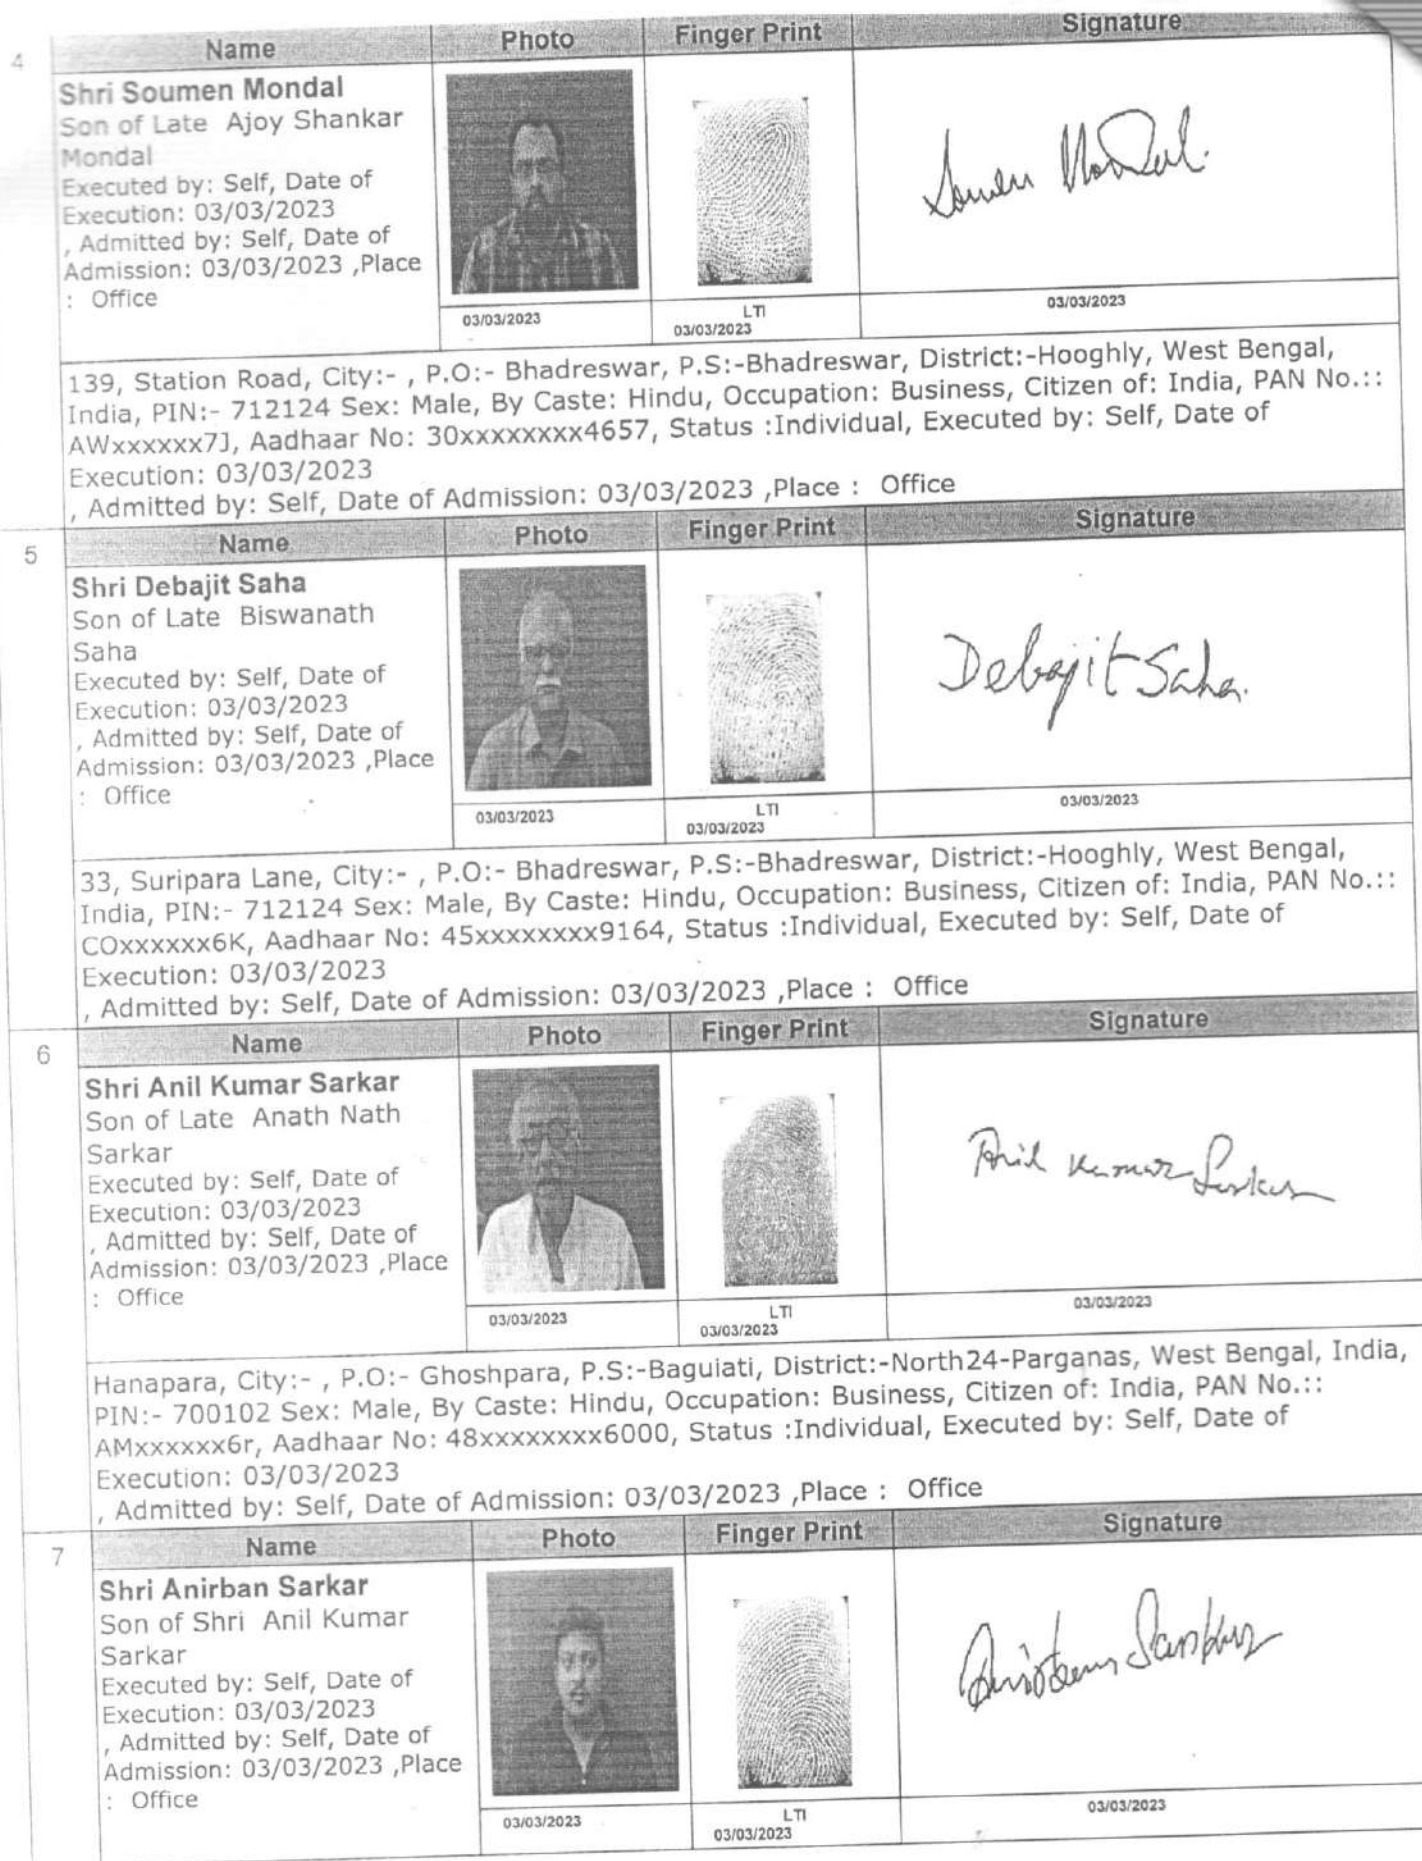 4
Name Photo Finger Print Signature
Shri Soumen Mondal
Son of Late Ajoy Shankar
Mondal
Executed by: Self, Date of
Execution: 03/03/2023
, Admitted by: Self, Date of
Admission: 03/03/2023 ,Place
: Office
Soumen Mondal.
03/03/2023
LTI
03/03/2023
03/03/2023
139, Station Road, City:- , P.O:- Bhadreswar, P.S:-Bhadreswar, District:-Hooghly, West Bengal,
India, PIN:- 712124 Sex: Male, By Caste: Hindu, Occupation: Business, Citizen of: India, PAN No.::
AWxxxxxx7J, Aadhaar No: 30xxxxxxxx4657, Status :Individual, Executed by: Self, Date of
Execution: 03/03/2023
, Admitted by: Self, Date of Admission: 03/03/2023 ,Place : Office
5
Name Photo Finger Print Signature
Shri Debajit Saha
Son of Late Biswanath
Saha
Executed by: Self, Date of
Execution: 03/03/2023
, Admitted by: Self, Date of
Admission: 03/03/2023 ,Place
: Office
Debajit Saha.
03/03/2023
LTI
03/03/2023
03/03/2023
33, Suripara Lane, City:- , P.O:- Bhadreswar, P.S:-Bhadreswar, District:-Hooghly, West Bengal,
India, PIN:- 712124 Sex: Male, By Caste: Hindu, Occupation: Business, Citizen of: India, PAN No.::
COxxxxxx6K, Aadhaar No: 45xxxxxxxx9164, Status :Individual, Executed by: Self, Date of
Execution: 03/03/2023
, Admitted by: Self, Date of Admission: 03/03/2023 ,Place : Office
6
Name Photo Finger Print Signature
Shri Anil Kumar Sarkar
Son of Late Anath Nath
Sarkar
Executed by: Self, Date of
Execution: 03/03/2023
, Admitted by: Self, Date of
Admission: 03/03/2023 ,Place
: Office
Anil Kumar Sarkar
03/03/2023
LTI
03/03/2023
03/03/2023
Hanapara, City:- , P.O:- Ghoshpara, P.S:-Baguiati, District:-North24-Parganas, West Bengal, India,
PIN:- 700102 Sex: Male, By Caste: Hindu, Occupation: Business, Citizen of: India, PAN No.::
AMxxxxxx6r, Aadhaar No: 48xxxxxxxx6000, Status :Individual, Executed by: Self, Date of
Execution: 03/03/2023
, Admitted by: Self, Date of Admission: 03/03/2023 ,Place : Office
7
Name Photo Finger Print Signature
Shri Anirban Sarkar
Son of Shri Anil Kumar
Sarkar
Executed by: Self, Date of
Execution: 03/03/2023
, Admitted by: Self, Date of
Admission: 03/03/2023 ,Place
: Office
Anirban Sarkar
03/03/2023
LTI
03/03/2023
03/03/2023